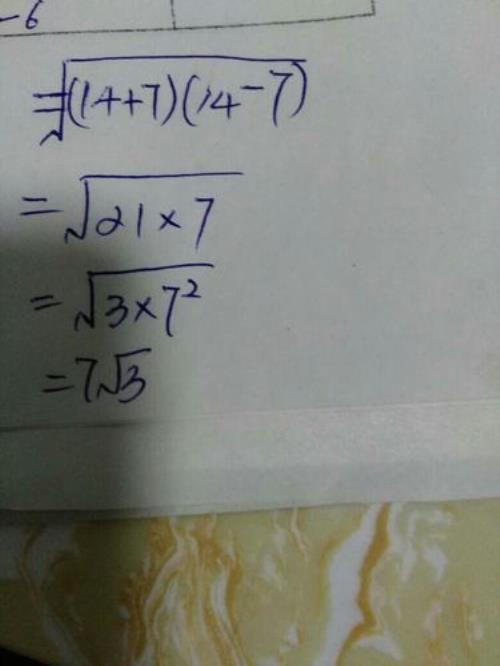 -6
=√(14+7)(14-7)
=√21×7
=√3×7²
=7√3